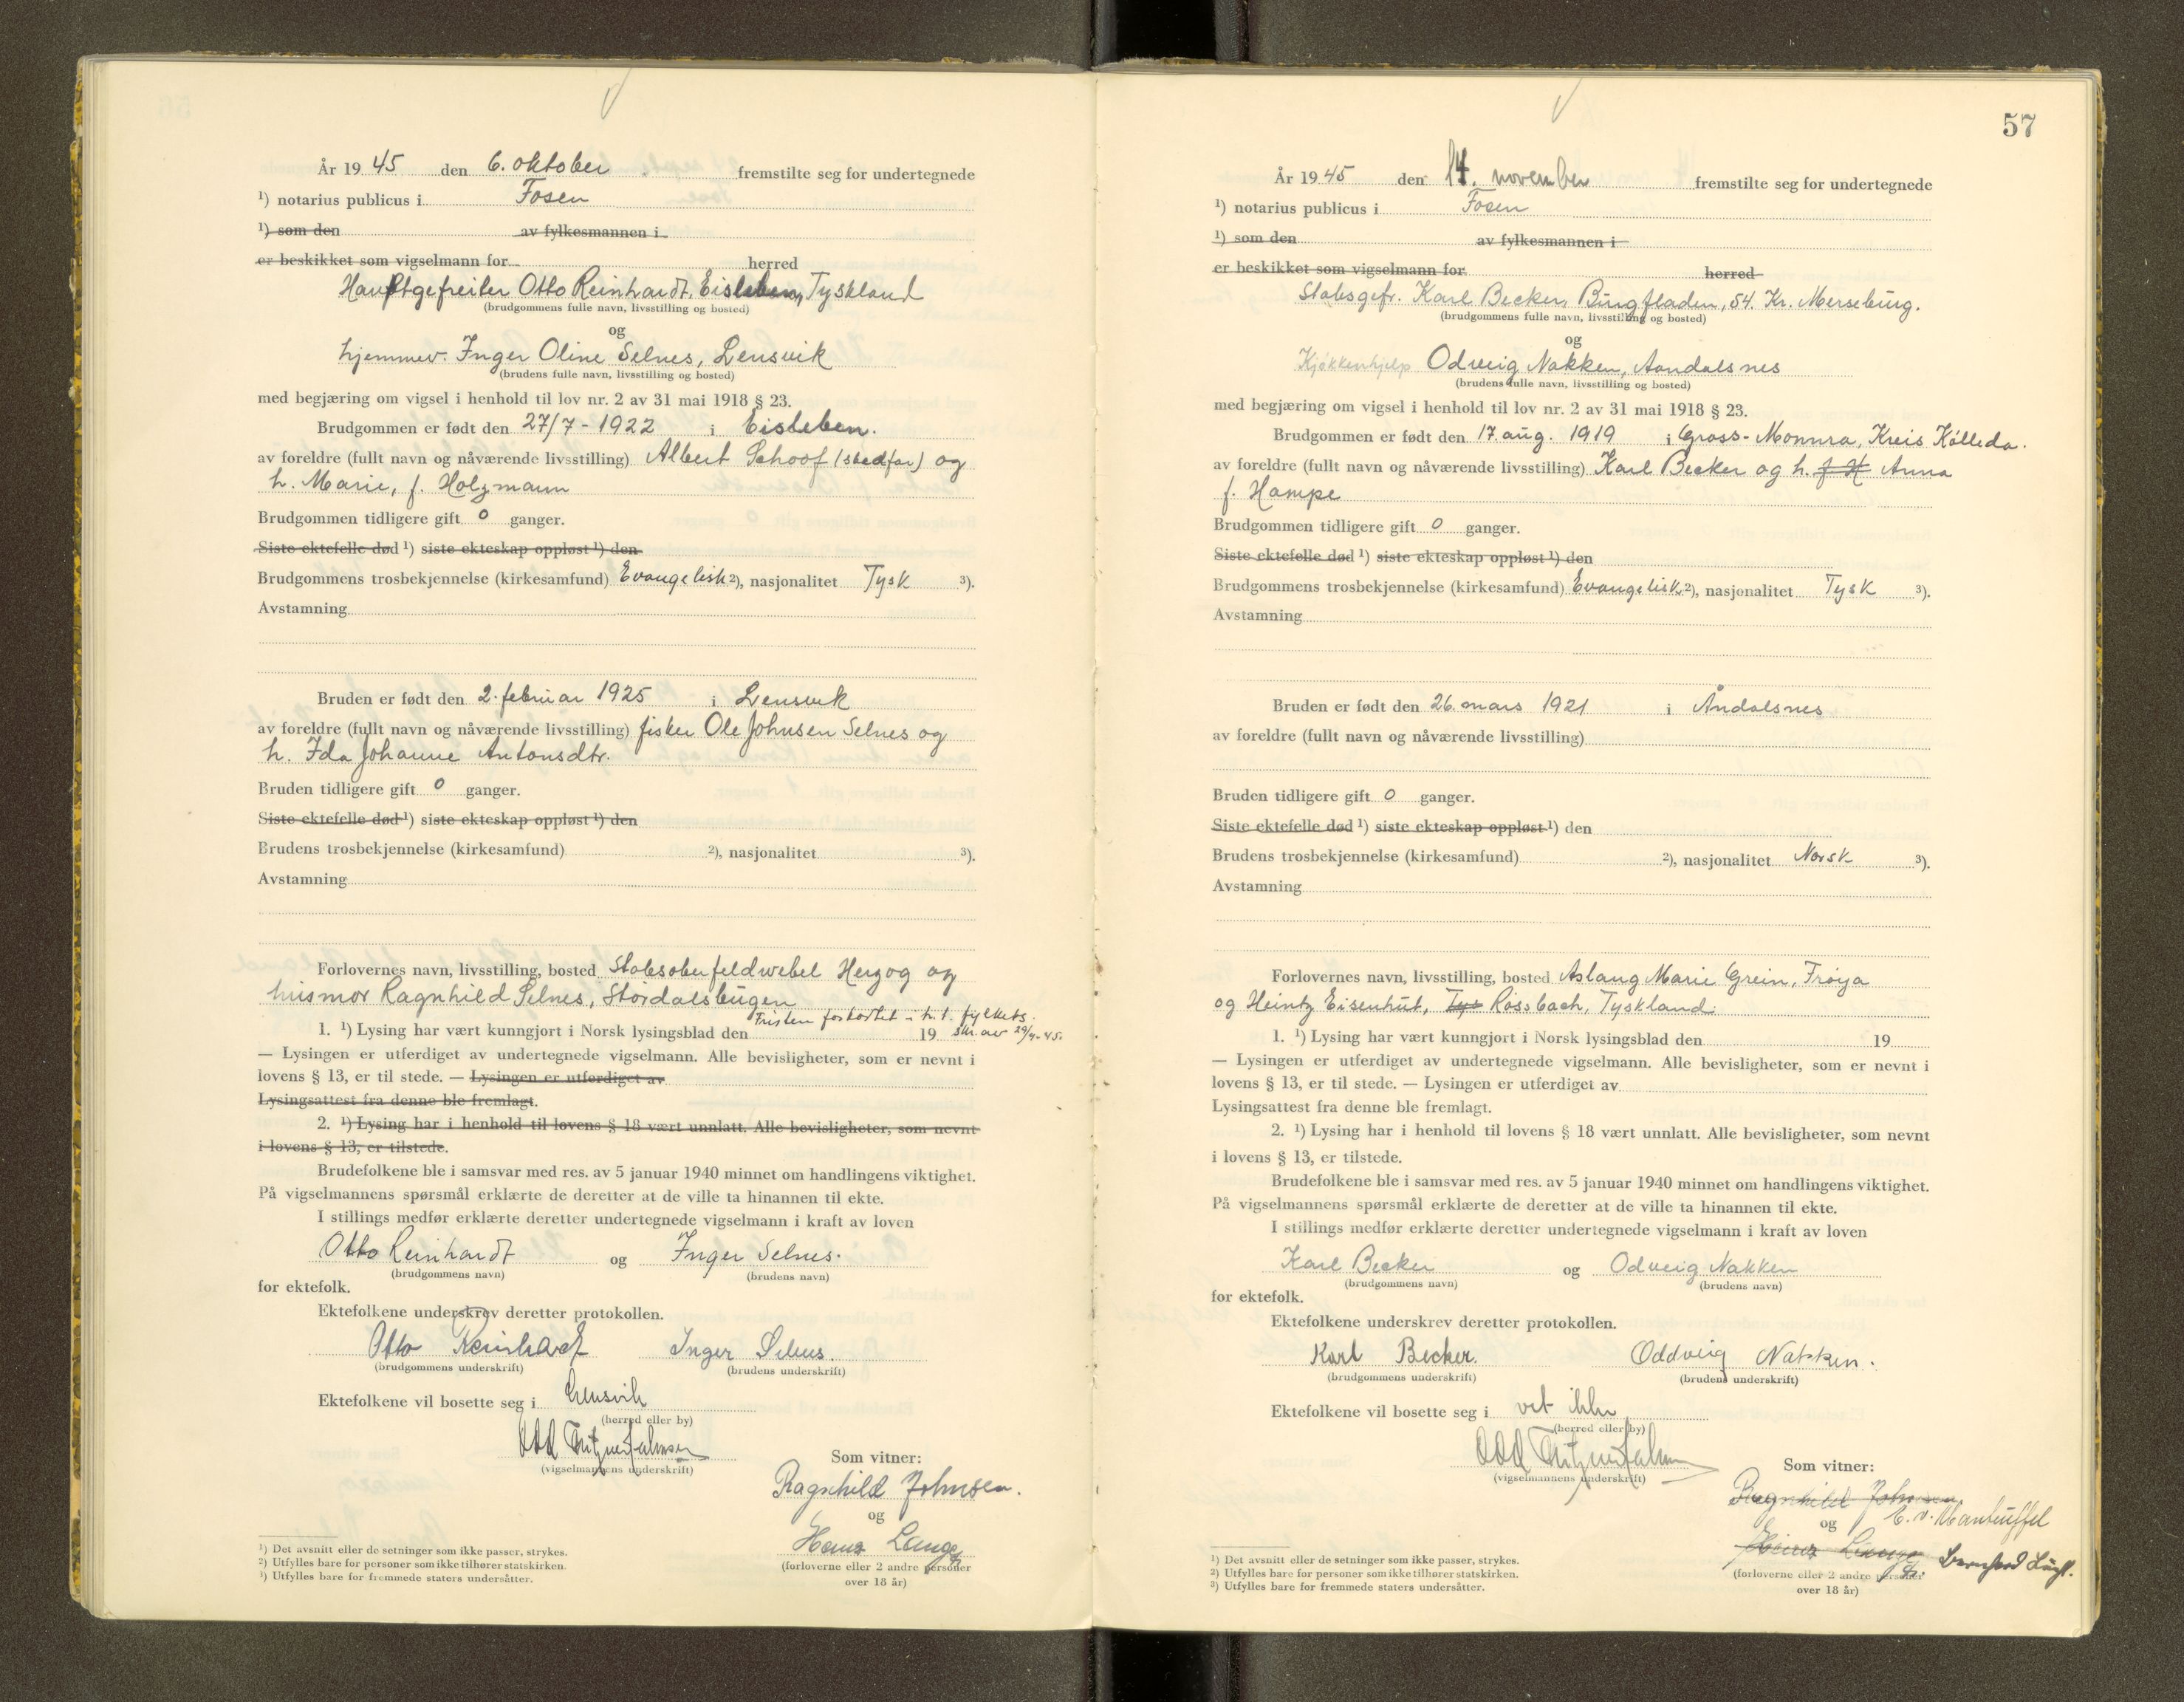 År 19 45 den 6. oktober fremstilte seg for undertegnede
¹) notarius publicus i Fosen
¹) som den av fylkesmannen i
er beskikket som vigselmann for herred
Hauptgefreiter Otto Reinhardt, Eisleben, Tyskland
(brudgommens fulle navn, livsstilling og bosted)
og
hjemmev. Inger Oline Selnes, Lensvik
(brudens fulle navn, livsstilling og bosted)
med begjæring om vigsel i henhold til lov nr. 2 av 31 mai 1918 § 23.
Brudgommen er født den 27/7 - 1922 i Eisleben.
av foreldre (fullt navn og nåværende livsstilling) Albert Schoof (stedfar) og
h. Marie, f. Holzmann
Brudgommen tidligere gift 0 ganger.
Siste ektefelle død ¹) siste ekteskap oppløst ¹) den
Brudgommens trosbekjennelse (kirkesamfund) Evangelisk ²), nasjonalitet Tysk ³).
Avstamning
Bruden er født den 2. februar 1925 i Lensvik
av foreldre (fullt navn og nåværende livsstilling) fisker Ole Johnsen Selnes og
h. Ida Johanne Antonsdtr.
Bruden tidligere gift 0 ganger.
Siste ektefelle død ¹) siste ekteskap oppløst ¹) den
Brudens trosbekjennelse (kirkesamfund) ²), nasjonalitet ³).
Avstamning
Forlovernes navn, livsstilling, bosted Stabsoberfeldwebel Herzog og
husmor Ragnhild Selnes, Stordalsbugen
Fristen forkortet i h.t. fylkets
1. ¹) Lysing har vært kunngjort i Norsk lysingsblad den 19 skr. av 29/9-45.
— Lysingen er utferdiget av undertegnede vigselmann. Alle bevisligheter, som er nevnt i
lovens § 13, er til stede. — Lysingen er utferdiget av
Lysingsattest fra denne ble fremlagt.
2. ¹) Lysing har i henhold til lovens § 18 vært unnlatt. Alle bevisligheter, som nevnt
i lovens § 13, er tilstede.
Brudefolkene ble i samsvar med res. av 5 januar 1940 minnet om handlingens viktighet.
På vigselmannens spørsmål erklærte de deretter at de ville ta hinannen til ekte.
I stillings medfør erklærte deretter undertegnede vigselmann i kraft av loven
Otto Reinhardt og Inger Selnes.
(brudgommens navn) (brudens navn)
for ektefolk.
Ektefolkene underskrev deretter protokollen.
Otto Reinhardt Inger Selnes.
(brudgommens underskrift) (brudens underskrift)
Ektefolkene vil bosette seg i Lensvik
(herred eller by)
(vigselmannens underskrift)
Som vitner:
Ragnhild Johnsen.
og
Hans Lange
(forloverne eller 2 andre personer
over 18 år)
¹) Det avsnitt eller de setninger som ikke passer, strykes.
²) Utfylles bare for personer som ikke tilhører statskirken.
³) Utfylles bare for fremmede staters undersåtter.
57
År 19 45 den 14. november fremstilte seg for undertegnede
¹) notarius publicus i Fosen
¹) som den av fylkesmannen i
er beskikket som vigselmann for herred
Stabsgefr. Karl Becker, Burgfladen, 54. Kr. Merseburg.
(brudgommens fulle navn, livsstilling og bosted)
og
Kjøkkenhjelp Odveig Nakken, Aandalsnes
(brudens fulle navn, livsstilling og bosted)
med begjæring om vigsel i henhold til lov nr. 2 av 31 mai 1918 § 23.
Brudgommen er født den 17. aug. 1919 i Gross-Monnra, Kreis Kölleda.
av foreldre (fullt navn og nåværende livsstilling) Karl Becker og h. f H Anna
f. Hampe
Brudgommen tidligere gift 0 ganger.
Siste ektefelle død ¹) siste ekteskap oppløst ¹) den
Brudgommens trosbekjennelse (kirkesamfund) Evangelisk ²), nasjonalitet Tysk ³).
Avstamning
Bruden er født den 26. mars 1921 i Åndalsnes
av foreldre (fullt navn og nåværende livsstilling)
Bruden tidligere gift 0 ganger.
Siste ektefelle død ¹) siste ekteskap oppløst ¹) den
Brudens trosbekjennelse (kirkesamfund) ²), nasjonalitet Norsk ³).
Avstamning
Forlovernes navn, livsstilling, bosted Aslaug Marie Grein, Frøya
og Heintz Eisenhut, Tys Rossbach, Tyskland.
1. ¹) Lysing har vært kunngjort i Norsk lysingsblad den 19
— Lysingen er utferdiget av undertegnede vigselmann. Alle bevisligheter, som er nevnt i
lovens § 13, er til stede. — Lysingen er utferdiget av
Lysingsattest fra denne ble fremlagt.
2. ¹) Lysing har i henhold til lovens § 18 vært unnlatt. Alle bevisligheter, som nevnt
i lovens § 13, er tilstede.
Brudefolkene ble i samsvar med res. av 5 januar 1940 minnet om handlingens viktighet.
På vigselmannens spørsmål erklærte de deretter at de ville ta hinannen til ekte.
I stillings medfør erklærte deretter undertegnede vigselmann i kraft av loven
Karl Becker og Odveig Nakken
(brudgommens navn) (brudens navn)
for ektefolk.
Ektefolkene underskrev deretter protokollen.
Karl Becker. Oddveig Nakken.
(brudgommens underskrift) (brudens underskrift)
Ektefolkene vil bosette seg i vet ikke
(herred eller by)
(vigselmannens underskrift)
Som vitner:
Ragnhild Johnsen
og E. v. Manteuffel
Bernhard
(forloverne eller 2 andre personer
over 18 år)
¹) Det avsnitt eller de setninger som ikke passer, strykes.
²) Utfylles bare for personer som ikke tilhører statskirken.
³) Utfylles bare for fremmede staters undersåtter.